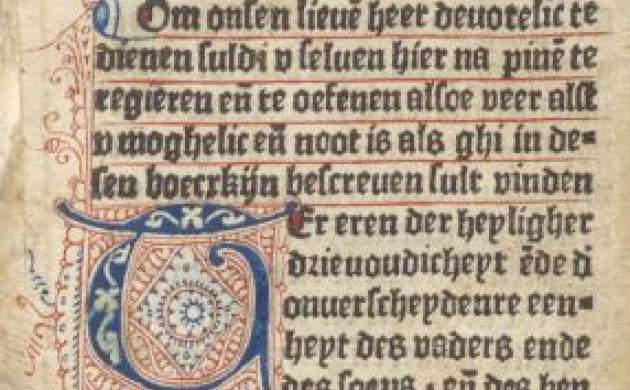 Om onsen lieuē heer deuotelic te
dienen suldi v seluen hier na pinē te
regieren eñ te oefenen alsoe veer alst
v moghelic eñ noot is als ghi in de=
sen boecxkijn bescreuen sult vinden
Ter eren der heyligher
drieuoudicheyt ēde d
onuerscheydenre een=
heyt des vaders ende
des soens · eñ des hey